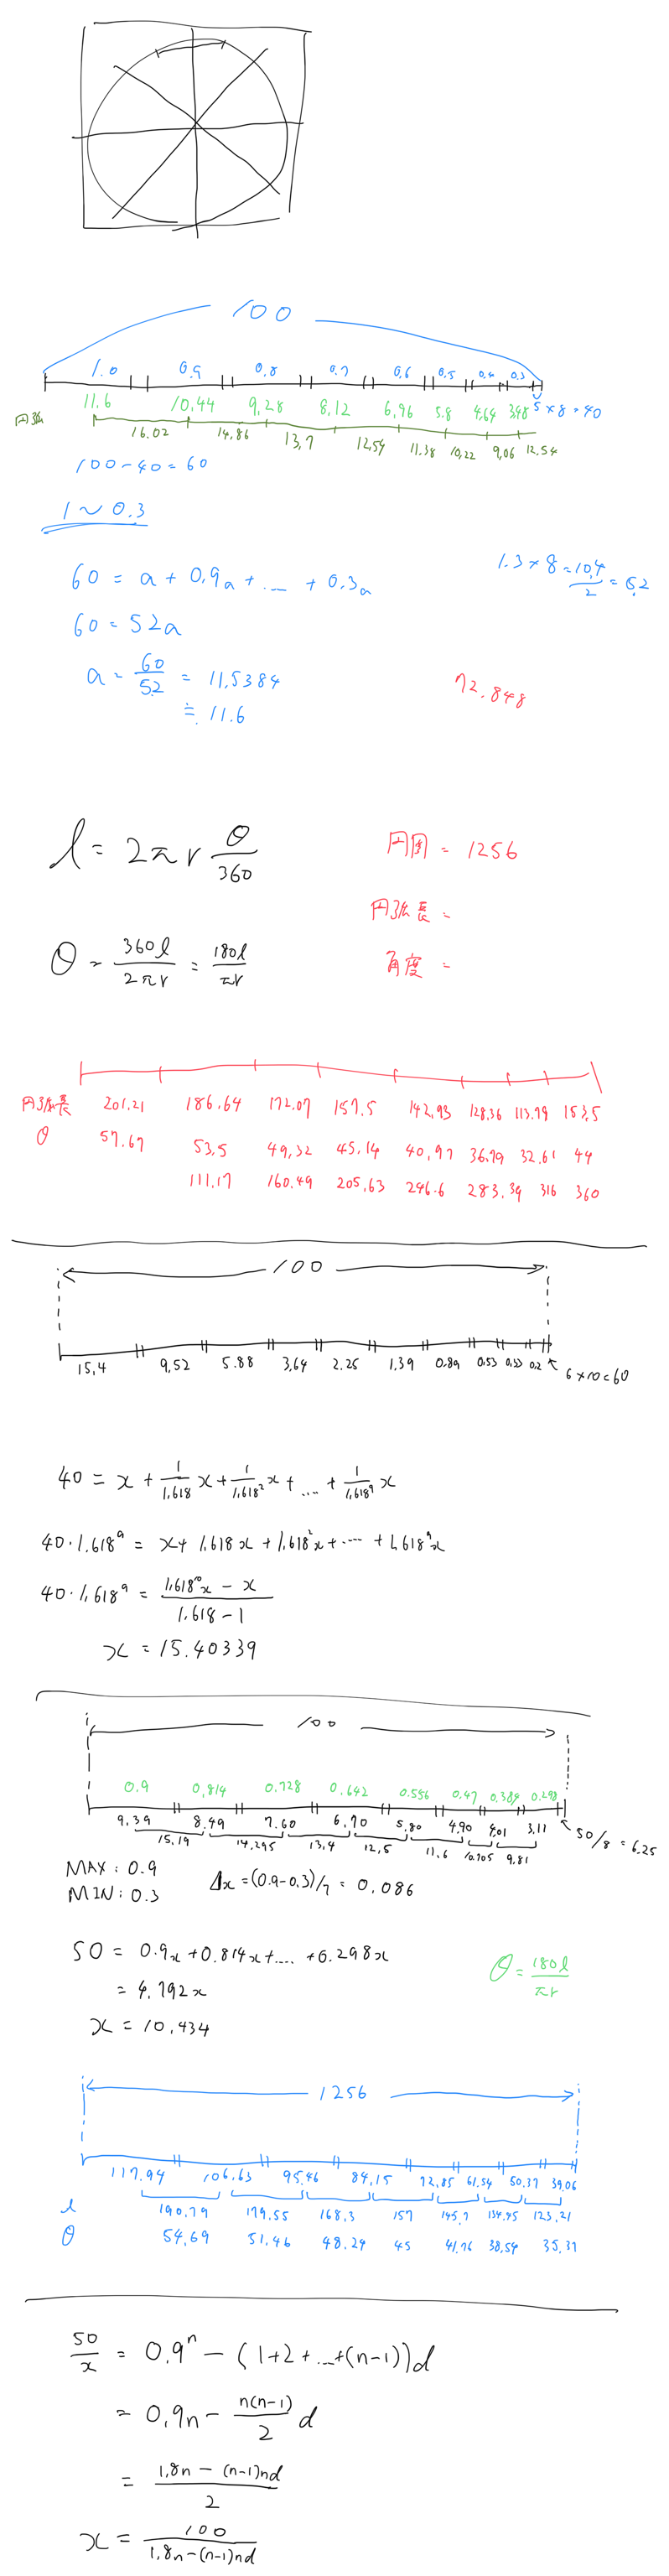 100
1.0 0.9 0.8 0.7 0.6 0.5 0.4 0.3
11.6 10.44 9.28 8.12 6.96 5.8 4.64 3.48 5 × 8 = 40
円弧 16.02 14.86 13.7 12.54 11.38 10.22 9.06 12.54
100 - 40 = 60
1 ~ 0.3
60 = a + 0.9a + ... + 0.3a
1.3 × 8 = 10.4/2 = 5.2
60 = 5.2a
a = 60/5.2 = 11.5384
≒ 11.6
72.848
l = 2πr θ/360
円周 = 1256
円弧長 =
θ = 360l/2πr = 180l/πr
角度 =
円弧長 201.21 186.64 172.07 157.5 142.93 128.36 113.79 153.5
θ 57.67 53.5 49.32 45.14 40.97 36.79 32.61 44
111.17 160.49 205.63 246.6 283.39 316 360
100
15.4 9.52 5.88 3.64 2.25 1.39 0.89 0.53 0.33 0.2 6 × 10 = 60
40 = x + 1/1.618 x + 1/1.618² x + .... + 1/1.618⁹ x
40・1.618⁹ = x + 1.618x + 1.618²x + .... + 1.618⁹x
40・1.618⁹ = (1.618¹⁰x - x)/(1.618 - 1)
x = 15.40339
100
0.9 0.814 0.728 0.642 0.556 0.47 0.384 0.298
9.39 8.49 7.60 6.70 5.80 4.90 4.01 3.11 50/8 = 6.25
15.19 14.295 13.4 12.5 11.6 10.705 9.81
MAX : 0.9
MIN : 0.3
Δx = (0.9-0.3)/7 = 0.086
50 = 0.9x + 0.814x + .... + 0.298x
= 4.792x
x = 10.434
θ = 180l/πr
1256
117.94 106.63 95.46 84.15 72.85 61.54 50.37 39.06
l 190.79 179.55 168.3 157 145.7 134.45 123.21
θ 54.69 51.46 48.24 45 41.76 38.54 35.31
50/x = 0.9n - (1+2+...+(n-1))d
= 0.9n - n(n-1)/2 d
= (1.8n - (n-1)nd)/2
x = 100/(1.8n-(n-1)nd)